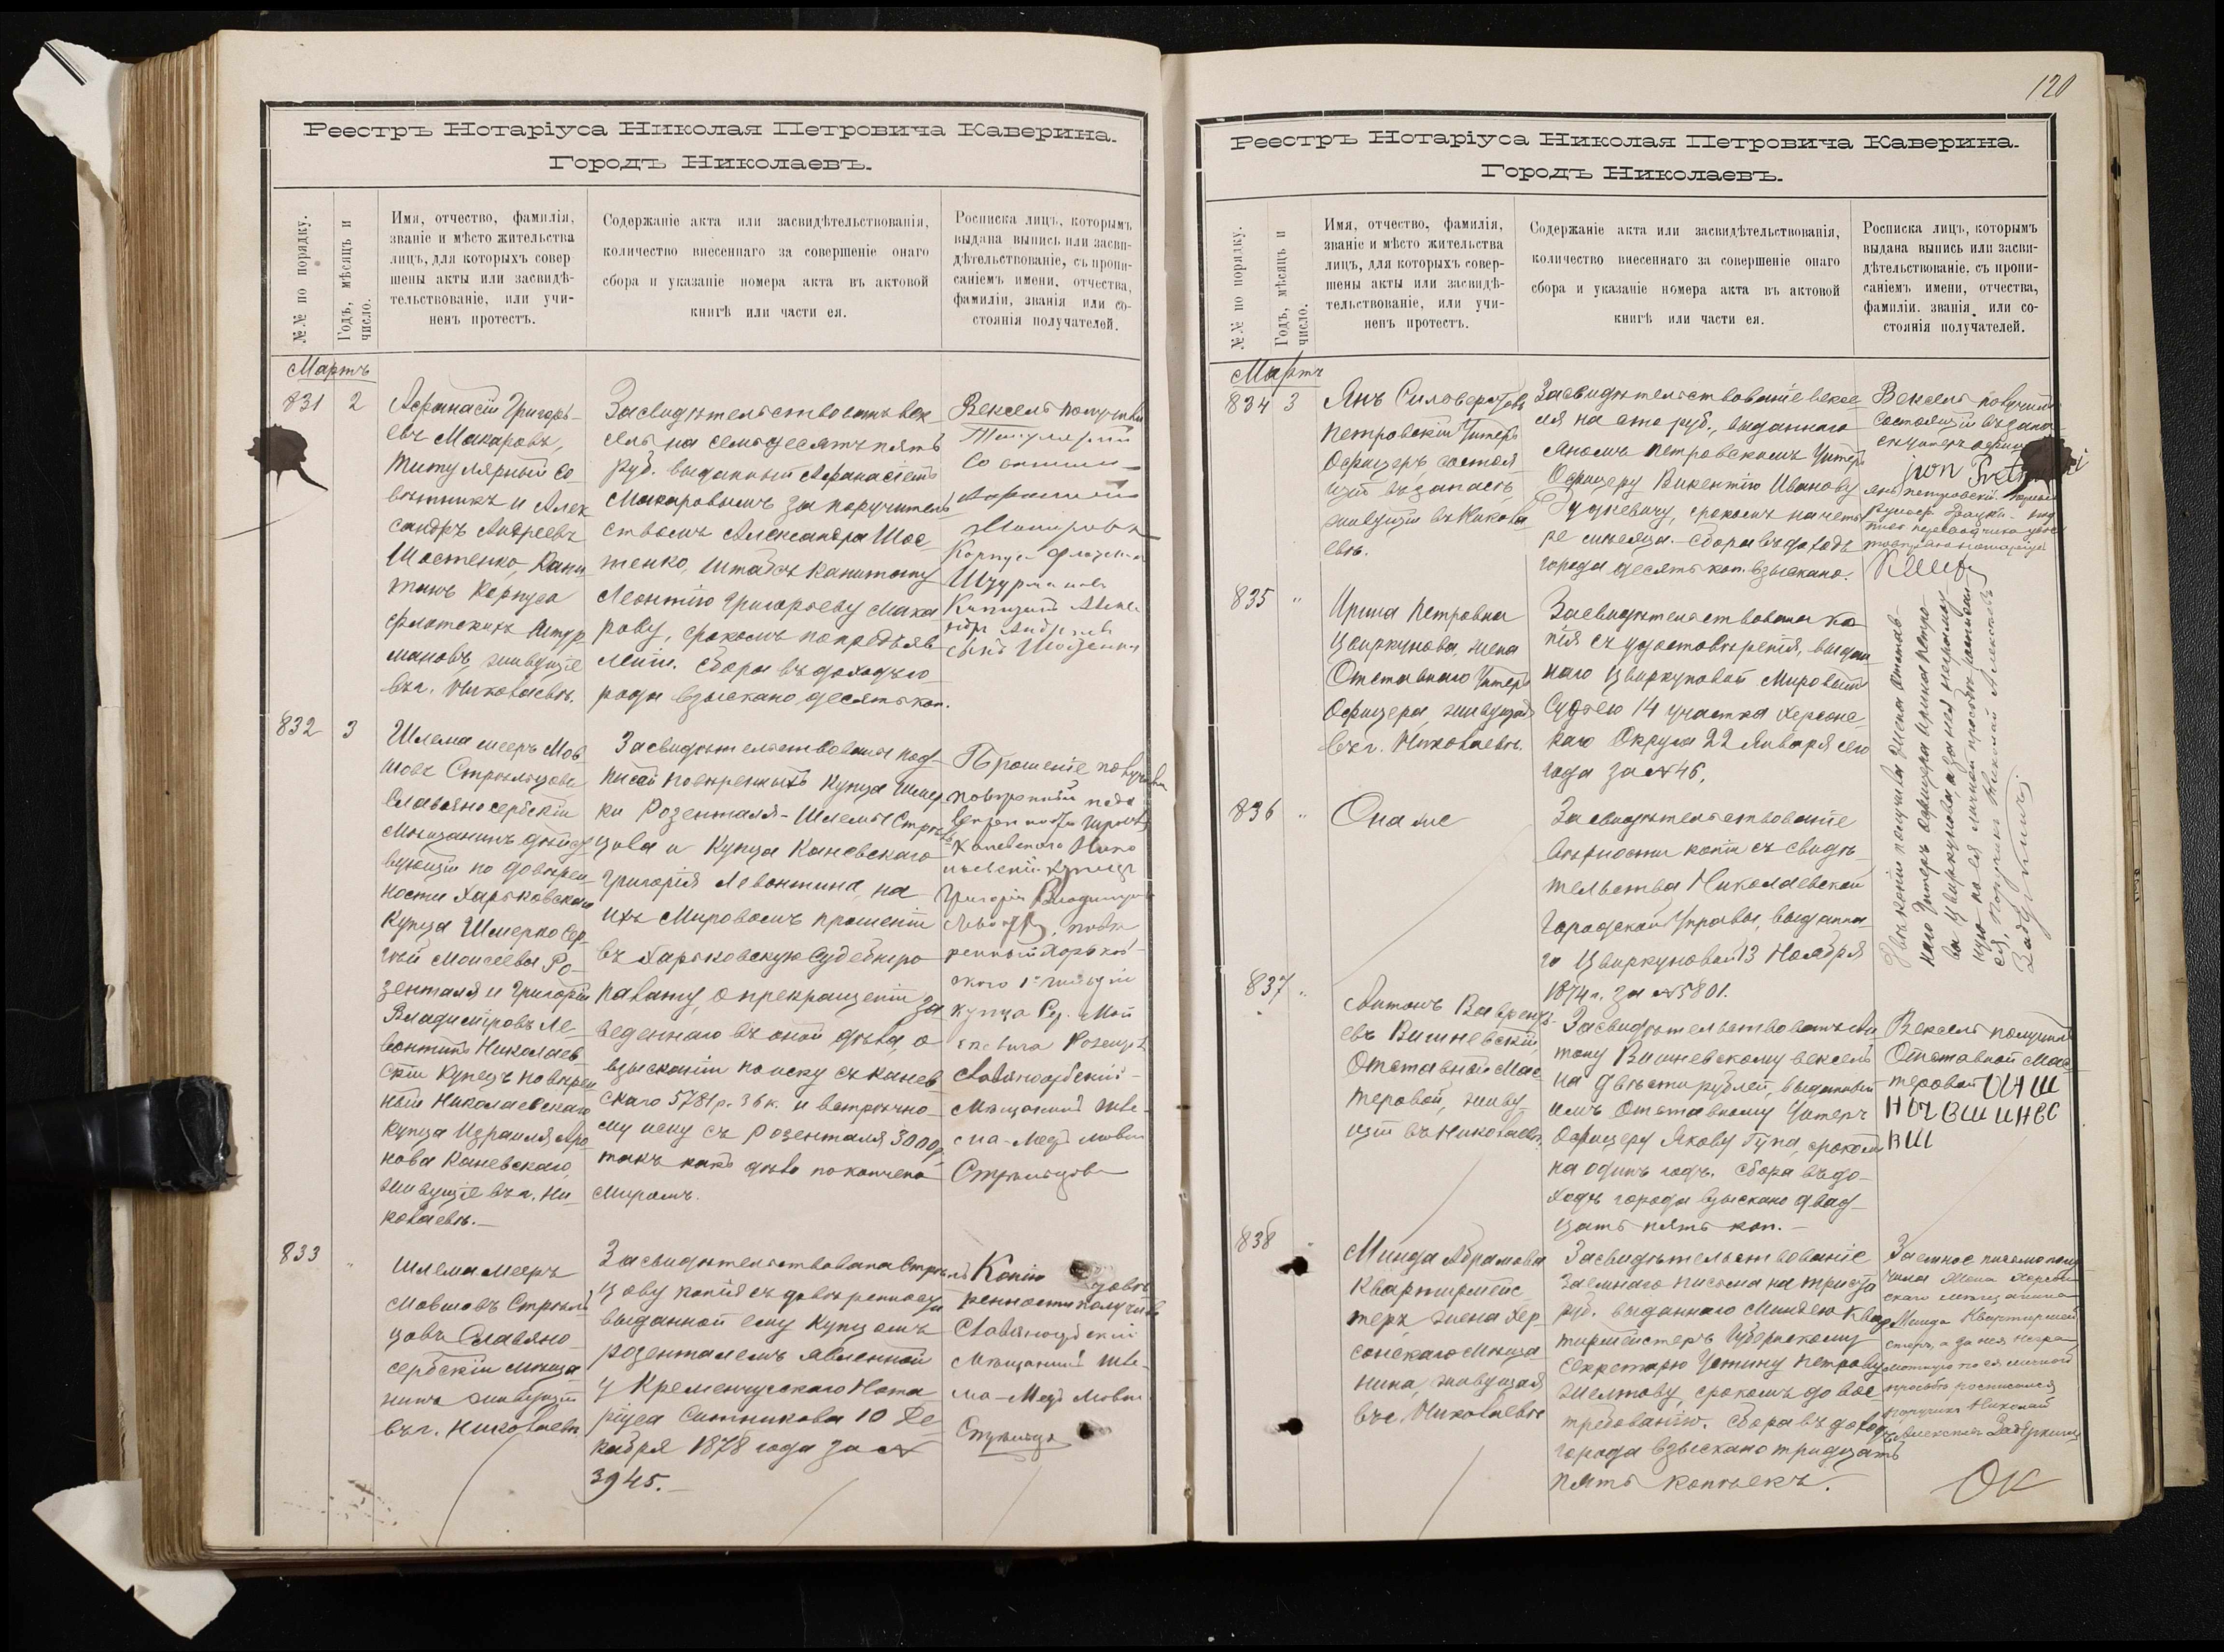 Реестръ Нотаріуса Николая Петровича Каверина.
Городъ Николаевъ.
№№ по порядку.
Годъ, мѣсяцъ и
число.
Имя, отчество, фамилія,
званіе и мѣсто жительства
лицъ, для которыхъ совер
шены акты или засвидѣ-
тельствованіе, или учи-
ненъ протестъ.
Содержаніе акта или засвидѣтельствованія,
количество внесеннаго за совершеніе онаго
сбора и указаніе номера акта въ актовой
книгѣ или части ея.
Росписка лицъ, которымъ
выдана выпись или засви-
дѣтельствованіе, съ пропи-
саніемъ имени, отчества,
фамиліи, званія или со-
стоянія получателей.
Мартъ
831
2
Афанасій Григорь-
евъ Макаровъ,
Титулярный Со
вѣтникъ и Алек
сандръ Андреевъ
Шостенко, Капи
танъ Корпуса
флотскихъ Штур
мановъ, живущіе
въ г. Николаевѣ.
Засвидѣтельствованъ век
сель на семьдесятъ пять
руб. выданный Афанасіемъ
Макаровымъ за поручитель
ствомъ Александра Шос
тенко, Штабсъ Капитану
Леонтію Григорьеву Мака
рову, срокомъ по предъяв
леніи. Сбора въ доходъ го
рода взыскано десять коп.
Вексель получилъ
Титулярный
Со
Макаровъ
Корпуса Флотск
Штурманов
Капитанъ Алекс
832
3
Шлема Мееръ Мов
шовъ Стрѣльцовъ
Славяносербскій
Мѣщанинъ дѣйст
вующій по довѣрен
ности Харьковскаго
Купца Шмерко Сер
гѣй Моисеева Ро-
зенталя и Григорій
Владиміровъ Ле
вонтинъ Николаев
скій Купецъ повѣрен
ный Николаевскаго
Купца Израиля Аро
нова Каневскаго,
живущіе въ г. Ни
колаевѣ.-
Засвидѣтельствованы под
писи повѣренныхъ Купца Шмер
ки Розенталя - Шлемы Стрѣль
цова и Купца Каневскаго
Григорія Левонтина, на
ихъ Мировомъ прошеніи
въ Харьковскую Судебную
палату, о прекращеніи за
веденнаго въ оной дѣла, о
взысканіи по иску съ Канев
скаго 5781 р. 36 к. и встрѣчно-
му иску съ Розенталя 3000 р.
такъ какъ дѣло покончено
миромъ.
Прошеніе получилъ
повѣренный
Каневскаго Нико
лаевскій Купецъ
Григорій Владиміровъ
повѣ
ренный Харьков-
скаго 1й гильдіи
купца
Розентал
Славяносербскій-
Мѣщанинъ Шле-
ма-Меер Мовш
Стрѣльцовъ
833
"
Шлема Мееръ
Мовшовъ Стрѣль
цовъ Славяно
сербскій мѣща
нинъ живущій
въ г. Николаевѣ
Засвидѣтельствована Стрѣль
цову копія съ довѣренности
выданной ему Купцомъ
Розенталемъ явленной
у Кременчугскаго Нота
ріуса Ситникова 10 Де
кабря 1878 года за №
3945.-
Копію съ довѣ
ренности получилъ
Славяносербскій
Мѣщанинъ Шле-
ма-Меер Мовш
Стрѣльцовъ
120
Реестръ Нотаріуса Николая Петровича Каверина.
Городъ Николаевъ.
№№ по порядку.
Годъ, мѣсяцъ и
число.
Имя, отчество, фамилія,
званіе и мѣсто жительства
лицъ, для которыхъ совер-
шены акты или засвидѣ-
тельствованіе, или учи-
ненъ протестъ.
Содержаніе акта или засвидѣтельствованія,
количество внесеннаго за совершеніе онаго
сбора и указаніе номера акта въ актовой
книгѣ или части ея.
Росписка лицъ, которымъ
выдана выпись или засви-
дѣтельствованіе, съ пропи-
саніемъ имени, отчества,
фамиліи, званія или со-
стоянія получателей.
Мартъ
834
3
Янъ
Петровскій Унтеръ
Офицеръ, состоя
щій въ запасѣ,
живущій въ Никола
евѣ.
Засвидѣтельствованіе вексе
ля на сто руб., выданнаго
Яномъ Петровскимъ Унтеръ
Офицеру Викентію Иванову
срокомъ на четы
ре мѣсяца. Сбора въ доходъ
города десять коп. взыскано.
Вексель получилъ
состоящій въ запа
сѣ унтеръ офиц
янъ петровскій
835
"
Ирина Петровна
Цвиркунова, жена
Отставнаго Унтеръ
Офицера, живущая
въ г. Николаевѣ.
Засвидѣтельствована ко
пія съ удостовѣренія, выдан
наго Цвиркуновой Мировымъ
Судьею 14 участка Херсонс
каго Округа 22 Января сего
года за № 46.
836
"
Она же
Засвидѣтельствованіе
вѣрности копіи съ свидѣ
тельства Николаевской
Городской Управы, выданна
го Цвиркуновой 13 Ноября
1874 г. за № 5801.
Двѣ копіи получила жена отстав-
наго Унтеръ офицера Ирина Петро-
ва Цвиркунова, а за нея неграмот-
ную по ея личной просьбѣ росписал
ся, поручикъ Николай Алексѣевъ
837
"
Антонъ Вавренть-
евъ Вишневскій,
Отставной Мас
теровой, живу
щій въ Николаевѣ
Засвидѣтельствованъ Ан
тону Вишневскому вексель
на двѣсти рублей, выданный
имъ Отставному Унтеръ
Офицеру Якову Гупа, срокомъ
на одинъ годъ. Сбора въ до-
ходъ города взыскано двад
цать пять коп.-
Вексель получилъ
Отставной Мас
теровой
838
Минда Абрамова
Квартирмейс
теръ, жена Хер
сонскаго Мѣща
нина, живущая
въ г. Николаевѣ
Засвидѣтельствованіе
заемнаго письма на триста
руб. выданнаго Миндею Квар
тирмейстеръ Губернскому
Секретарю Устину Петрову
Желтову, срокомъ до вос
требованія. Сбора въ доходъ
города взыскано тридцать
пять копѣекъ.
Заемное письмо полу
чила Жена Херсон
скаго мѣщанина
Минда Квартирмей
стеръ, а за нея негра
мотную по ея личной
просьбѣ росписался
поручикъ Николай